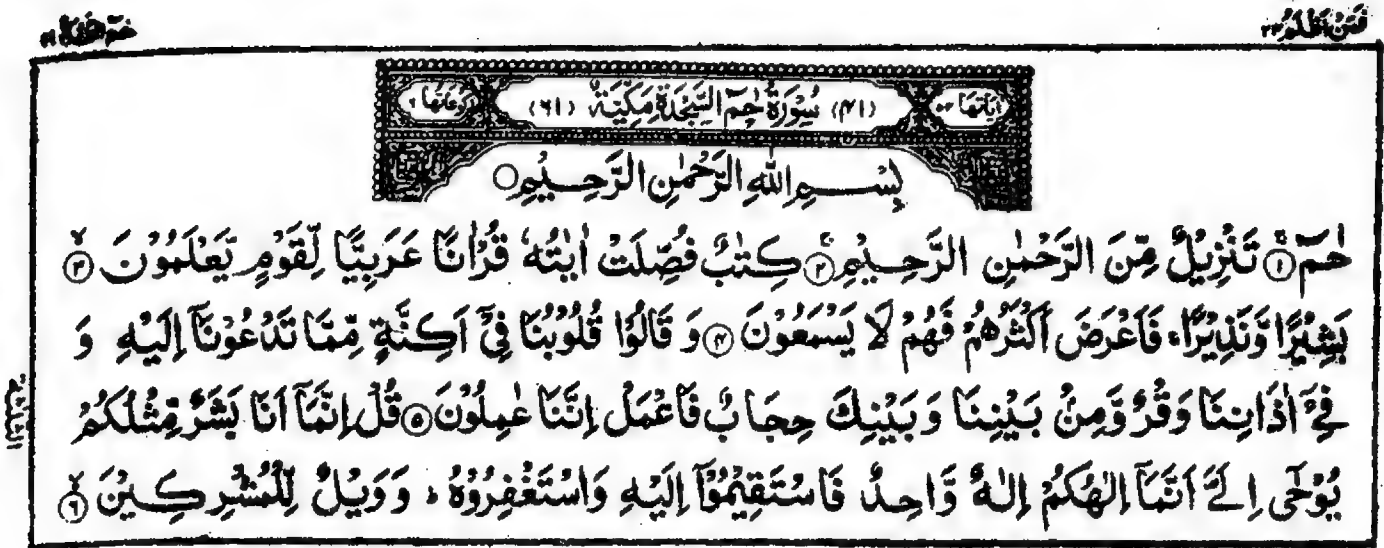 فَمَنْ اَظْلَمُ ۲۴
حٰمٓ السجدة ۴۱
اٰیَاتُهَا ۵۴
(۴۱) سُوْرَةُ حٰمٓ السَّجْدَةِ مَكِّیَّةٌ (۶۱)
رُكُوْعَاتُهَا ۶
بِسْــــمِ اللّٰهِ الرَّحْمٰنِ الرَّحِـــیْمِ○
حٰمٓ ۚ﴿۱﴾ تَنْزِیْلٌ مِّنَ الرَّحْمٰنِ الرَّحِـیْمِ ۚ﴿۲﴾ كِتٰبٌ فُصِّلَتْ اٰیٰتُهٗ قُرْاٰنًا عَرَبِیًّا لِّقَوْمٍ یَّعْلَمُوْنَ ۙ﴿۳﴾
بَشِیْرًا وَّنَذِیْرًا ۚ فَاَعْرَضَ اَكْثَرُهُمْ فَهُمْ لَا یَسْمَعُوْنَ ﴿۴﴾ وَ قَالُوْا قُلُوْبُنَا فِیْۤ اَكِنَّةٍ مِّمَّا تَدْعُوْنَاۤ اِلَیْهِ وَ
فِیْۤ اٰذَانِنَا وَقْرٌ وَّمِنْۢ بَیْنِنَا وَبَیْنِكَ حِجَابٌ فَاعْمَلْ اِنَّنَا عٰمِلُوْنَ ﴿۵﴾ قُلْ اِنَّمَاۤ اَنَا بَشَرٌ مِّثْلُكُمْ
یُوْحٰۤی اِلَیَّ اَنَّمَاۤ اِلٰهُكُمْ اِلٰهٌ وَّاحِدٌ فَاسْتَقِیْمُوْۤا اِلَیْهِ وَاسْتَغْفِرُوْهُ ؕ وَوَیْلٌ لِّلْمُشْرِكِـیْنَ ۙ﴿۶﴾